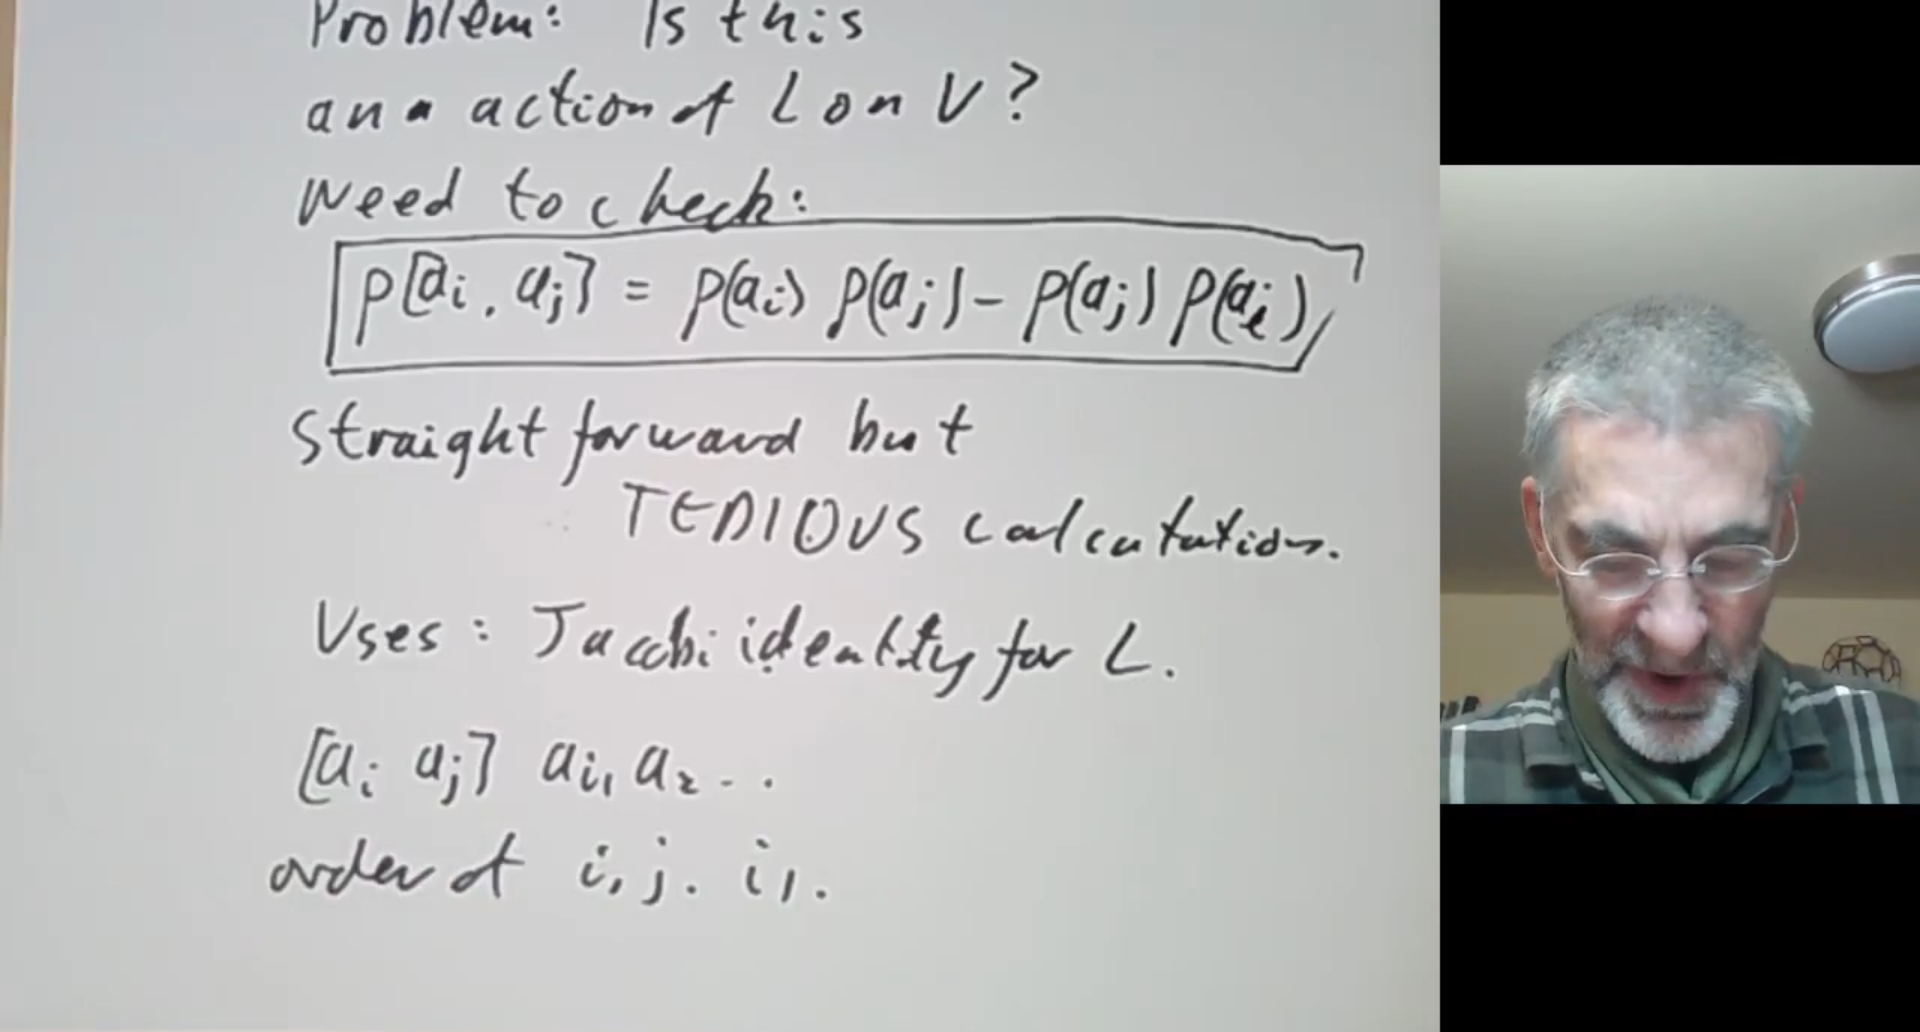 Problem: Is this
an action of L on V?
Need to check:
ρ[ai, aj] = ρ(ai) ρ(aj) - ρ(aj) ρ(ai)
Straight forward but
TEDIOUS calculation.
Uses: Jacobi identity for L.
[ai aj] ai1 a2 ...
order of i, j, i1.